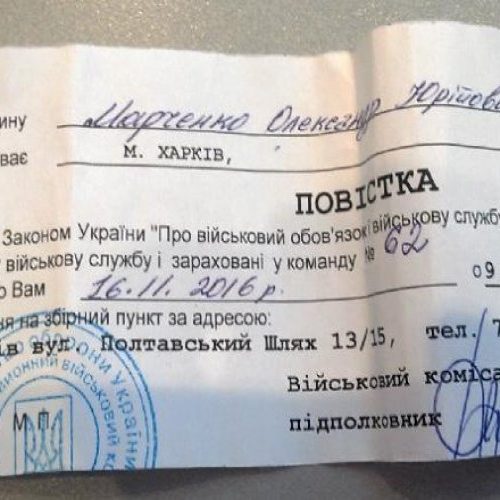 ину Марченко Олександр Юрійови
ває М. ХАРКІВ,
ПОВІСТКА
Законом України "Про військовий обов'язок і військову служб
військову службу і зараховані у команду № 62
о Вам 16.11. 2016 р. 09
ня на збірний пункт за адресою:
ів вул. Полтавський Шлях 13/15, тел. 7
Військовий коміса
М.П. підполковник